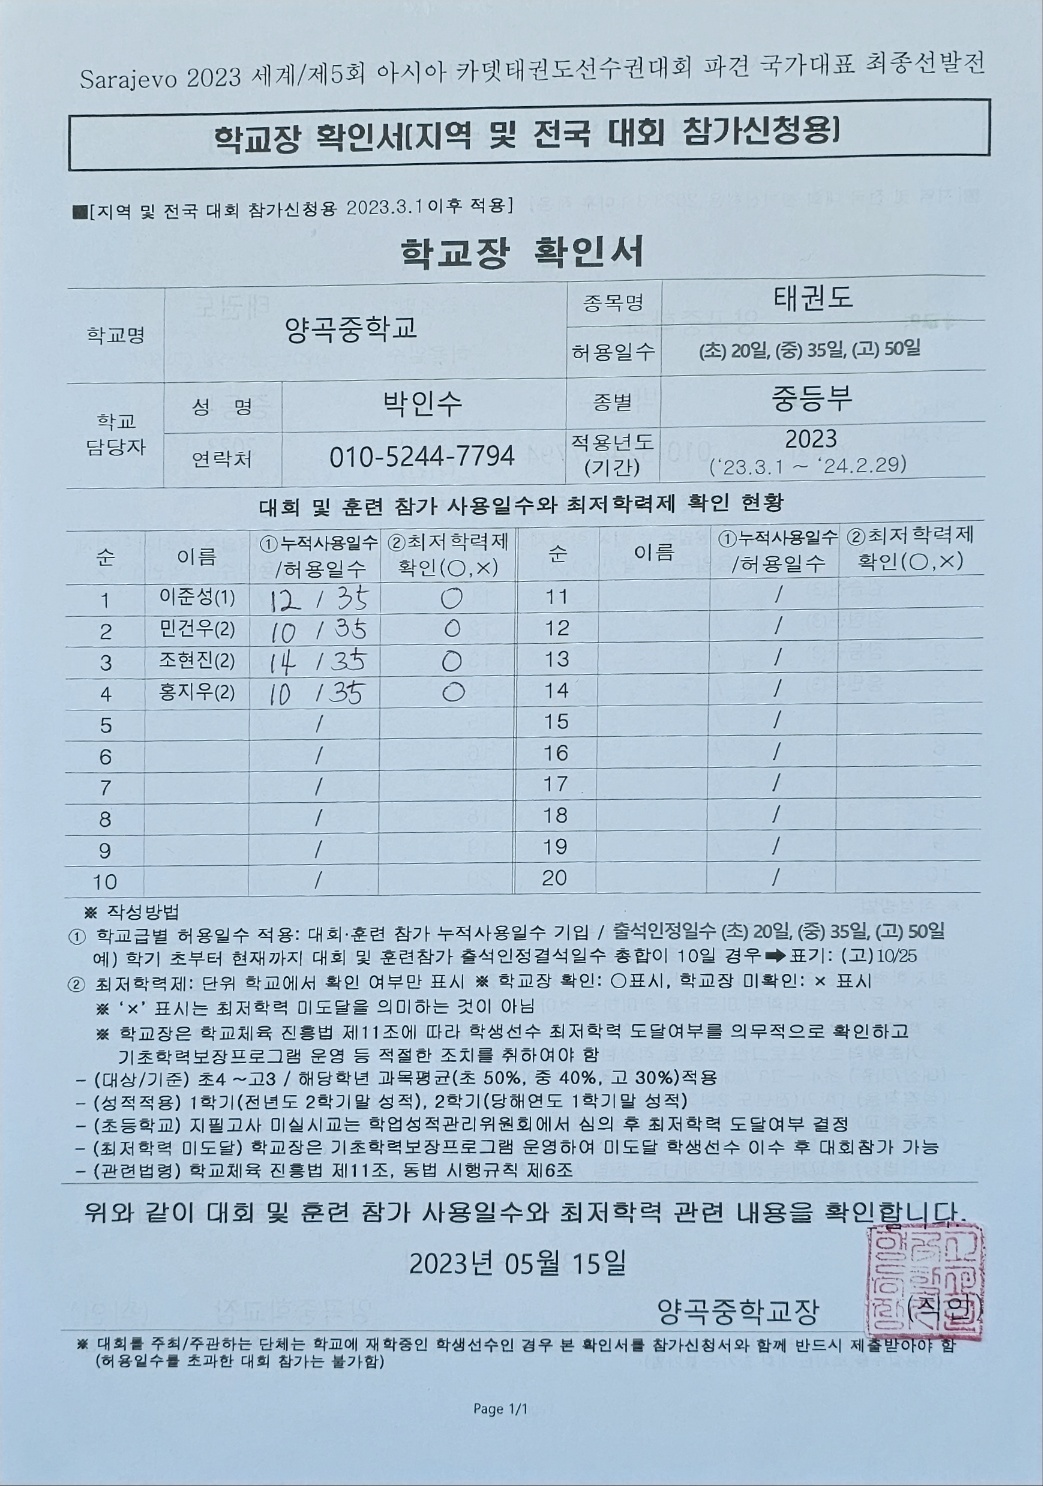 Sarajevo 2023 세계/제5회 아시아 카뎃태권도선수권대회 파견 국가대표 최종선발전
학교장 확인서(지역 및 전국 대회 참가신청용)
■[지역 및 전국 대회 참가신청용 2023.3.1이후 적용]
학교장 확인서
학교명 양곡중학교 종목명 태권도
허용일수 (초) 20일, (중) 35일, (고) 50일
학교 담당자 성 명 박인수 종별 중등부
연락처 010-5244-7794 적용년도 (기간) 2023 (‘23.3.1 ~ ‘24.2.29)
대회 및 훈련 참가 사용일수와 최저학력제 확인 현황
순 이름 ①누적사용일수 /허용일수 ②최저학력제 확인(○,×) 순 이름 ①누적사용일수 /허용일수 ②최저학력제 확인(○,×)
1 이준성(1) 12 / 35 ○ 11 /
2 민건우(2) 10 / 35 ○ 12 /
3 조현진(2) 14 / 35 ○ 13 /
4 홍지우(2) 10 / 35 ○ 14 /
5 / 15 /
6 / 16 /
7 / 17 /
8 / 18 /
9 / 19 /
10 / 20 /
※ 작성방법
① 학교급별 허용일수 적용: 대회·훈련 참가 누적사용일수 기입 / 출석인정일수 (초) 20일, (중) 35일, (고) 50일
예) 학기 초부터 현재까지 대회 및 훈련참가 출석인정결석일수 총합이 10일 경우➡표기: (고)10/25
② 최저학력제: 단위 학교에서 확인 여부만 표시 ※ 학교장 확인: ○표시, 학교장 미확인: × 표시
※ ‘×’ 표시는 최저학력 미도달을 의미하는 것이 아님
※ 학교장은 학교체육 진흥법 제11조에 따라 학생선수 최저학력 도달여부를 의무적으로 확인하고
기초학력보장프로그램 운영 등 적절한 조치를 취하여야 함
- (대상/기준) 초4 ~고3 / 해당학년 과목평균(초 50%, 중 40%, 고 30%)적용
- (성적적용) 1학기(전년도 2학기말 성적), 2학기(당해연도 1학기말 성적)
- (초등학교) 지필고사 미실시교는 학업성적관리위원회에서 심의 후 최저학력 도달여부 결정
- (최저학력 미도달) 학교장은 기초학력보장프로그램 운영하여 미도달 학생선수 이수 후 대회참가 가능
- (관련법령) 학교체육 진흥법 제11조, 동법 시행규칙 제6조
위와 같이 대회 및 훈련 참가 사용일수와 최저학력 관련 내용을 확인합니다.
2023년 05월 15일
양곡중학교장 (직인)
※ 대회를 주최/주관하는 단체는 학교에 재학중인 학생선수인 경우 본 확인서를 참가신청서와 함께 반드시 제출받아야 함
(허용일수를 초과한 대회 참가는 불가함)
Page 1/1